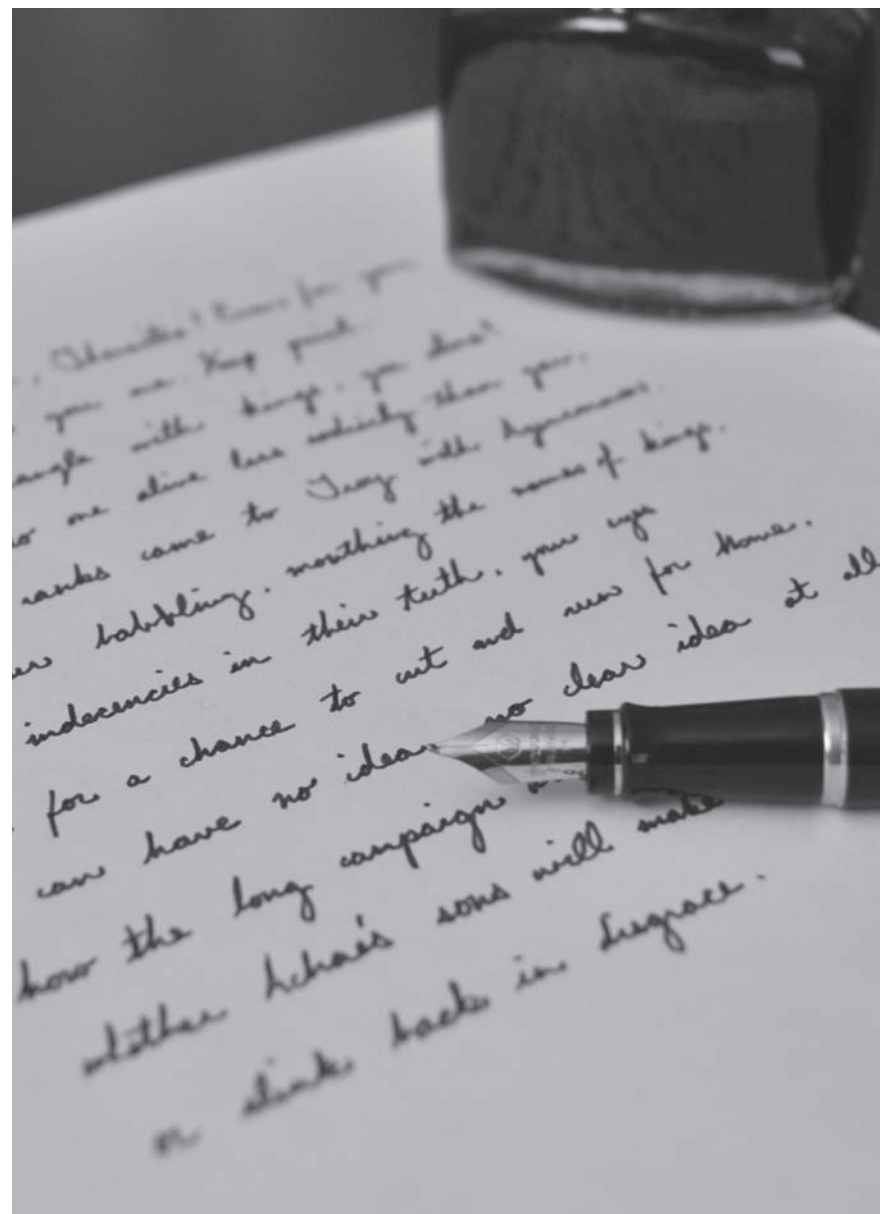 , Thersites! Even for you
you are. Keep quiet.
angle with kings, you alone?
no one alive less soldierly than you,
ranks came to Troy with Agamemnon.
babbling, mouthing the names of kings,
indecencies in their teeth, your eyes
for a chance to cut and run for home.
can have no idea, no clear idea at all
how the long campaign
whether Achaea's sons will make
or slink back in disgrace.